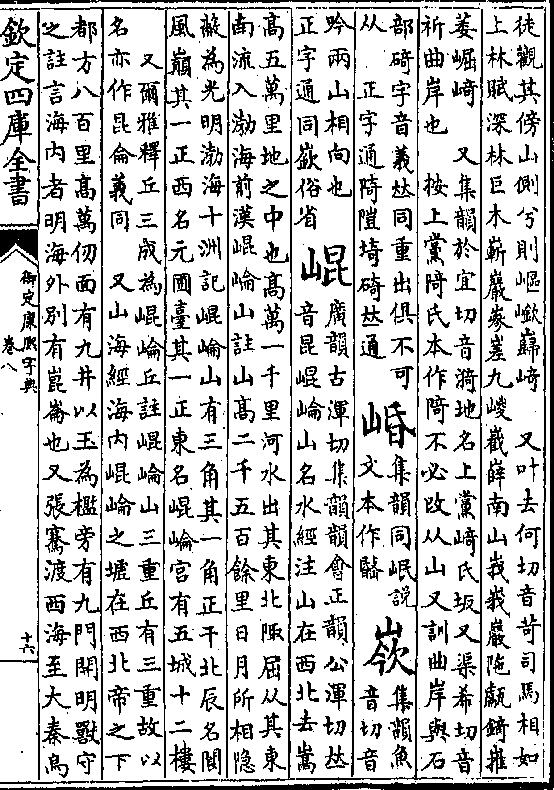 徒觀其傍山側兮則嶇嶔巋崎 又叶去何切音苛司馬相如
上林賦深林巨木嶄巖嵾嵳九嵏嶻嶭南山峩峩巖陁甗錡摧
萎崛崎 又集韻於宜切音漪地名上黨崎氏坂又渠希切音
祈曲岸也 按上黨陭氏本作陭不必改从山又訓曲岸與石
部碕字音義𠀤同重出俱不可
从 正字通陭隑埼碕𠀤通
崏
集韻同岷說
文本作
集韻魚
音切音
吟兩山相向也
正字通同嶔俗省
崐
廣韻古渾切集韻韻會正韻公渾切𠀤
音昆崐崘山名水經注山在西北去嵩
高五萬里地之中也高萬一千里河水出其東北陬屈从其東
南流入渤海前漢崐崘山註山高二千五百餘里日月所相隱
蔽為光明渤海十洲記崐崘山有三角其一角正干北辰名閬
風巔其一正西名元圃臺其一正東名崐崘宮有五城十二樓
又爾雅釋丘三成為崐崘丘註崐崘山三重丘有三重故以
名亦作昆侖義同 又山海經海内崐崘之墟在西北帝之下
都方八百里高萬仞面有九井以玉為檻旁有九門開明獸守
之註言海内者明海外別有崑崙也又張騫渡西海至大秦烏
欽定四庫全書
御定康熙字典
卷八
十六